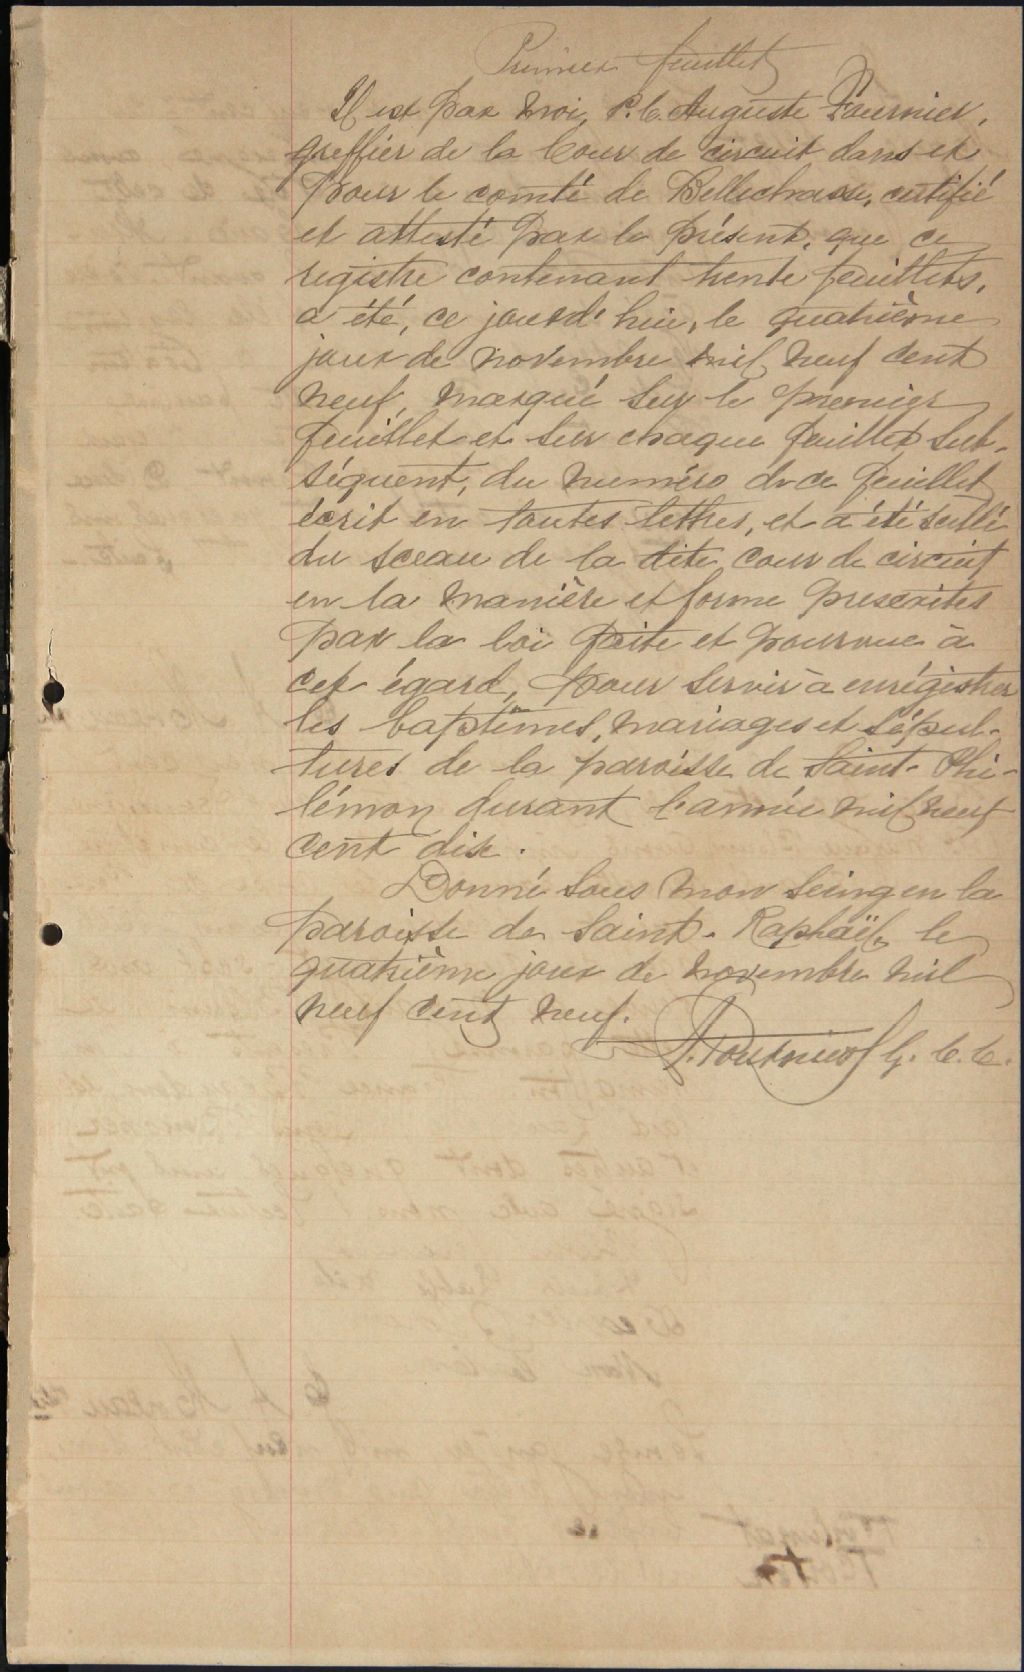 Premier feuillet
Il est par moi, P. C. Auguste Fournier,
greffier de la Cour de circuit dans et
pour le comté de Bellechasse, certifié
et attesté par le présent, que ce
registre contenant trente feuillets,
a été, ce jourd'hui, le quatrième
jour de novembre mil neuf cent
neuf, marqué sur le premier
feuillet et sur chaque feuillet sub-
séquent, du numéro de ce feuillet
écrit en toutes lettres, et a été scellé
du sceau de la dite cour de circuit
en la manière et forme prescrites
par la loi faite et pourvue à
cet égard, pour servir à enrégistrer
les baptêmes, mariages et sépul-
tures de la paroisse de Saint-Phi-
lémon durant l'année mil neuf
cent dix.
Donné sous mon seing en la
paroisse de Saint-Raphaël, le
quatrième jour de novembre mil
neuf cent neuf.
A. Fournier G. C. C.